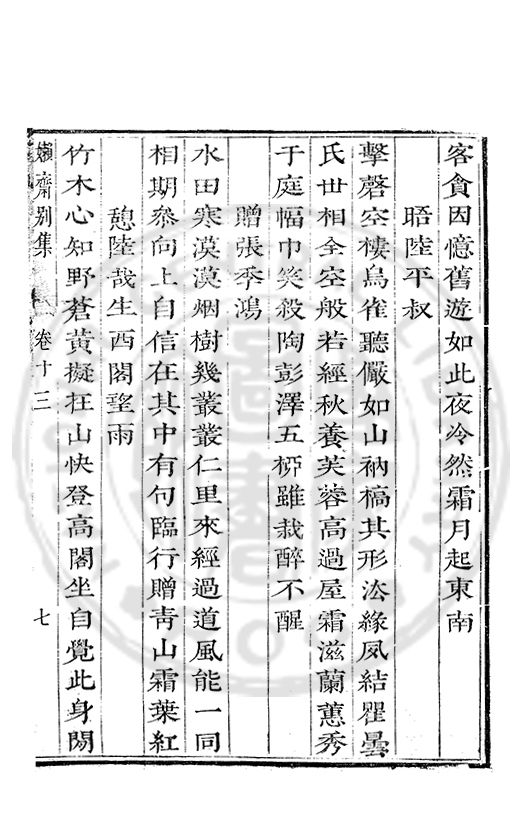 客貪因憶舊遊如此夜冷然霜月起東南
晤陸平叔
擊磬空樓烏雀聽儼如山衲槁其形法緣夙結瞿曇
氏世相全空般若經秋養芙蓉高過屋霜滋蘭蕙秀
于庭幅巾笑殺陶彭澤五栁雖栽醉不醒
贈張季鴻
水田寒漠漠烟樹幾叢叢仁里來經過道風能一同
相期叅向上自信在其中有句臨行贈靑山霜葉紅
憩陸哉生西閣望雨
竹木心知野蒼黃擬枉山快登高閣坐自覺此身閒
嬾齋别集 卷十三 七